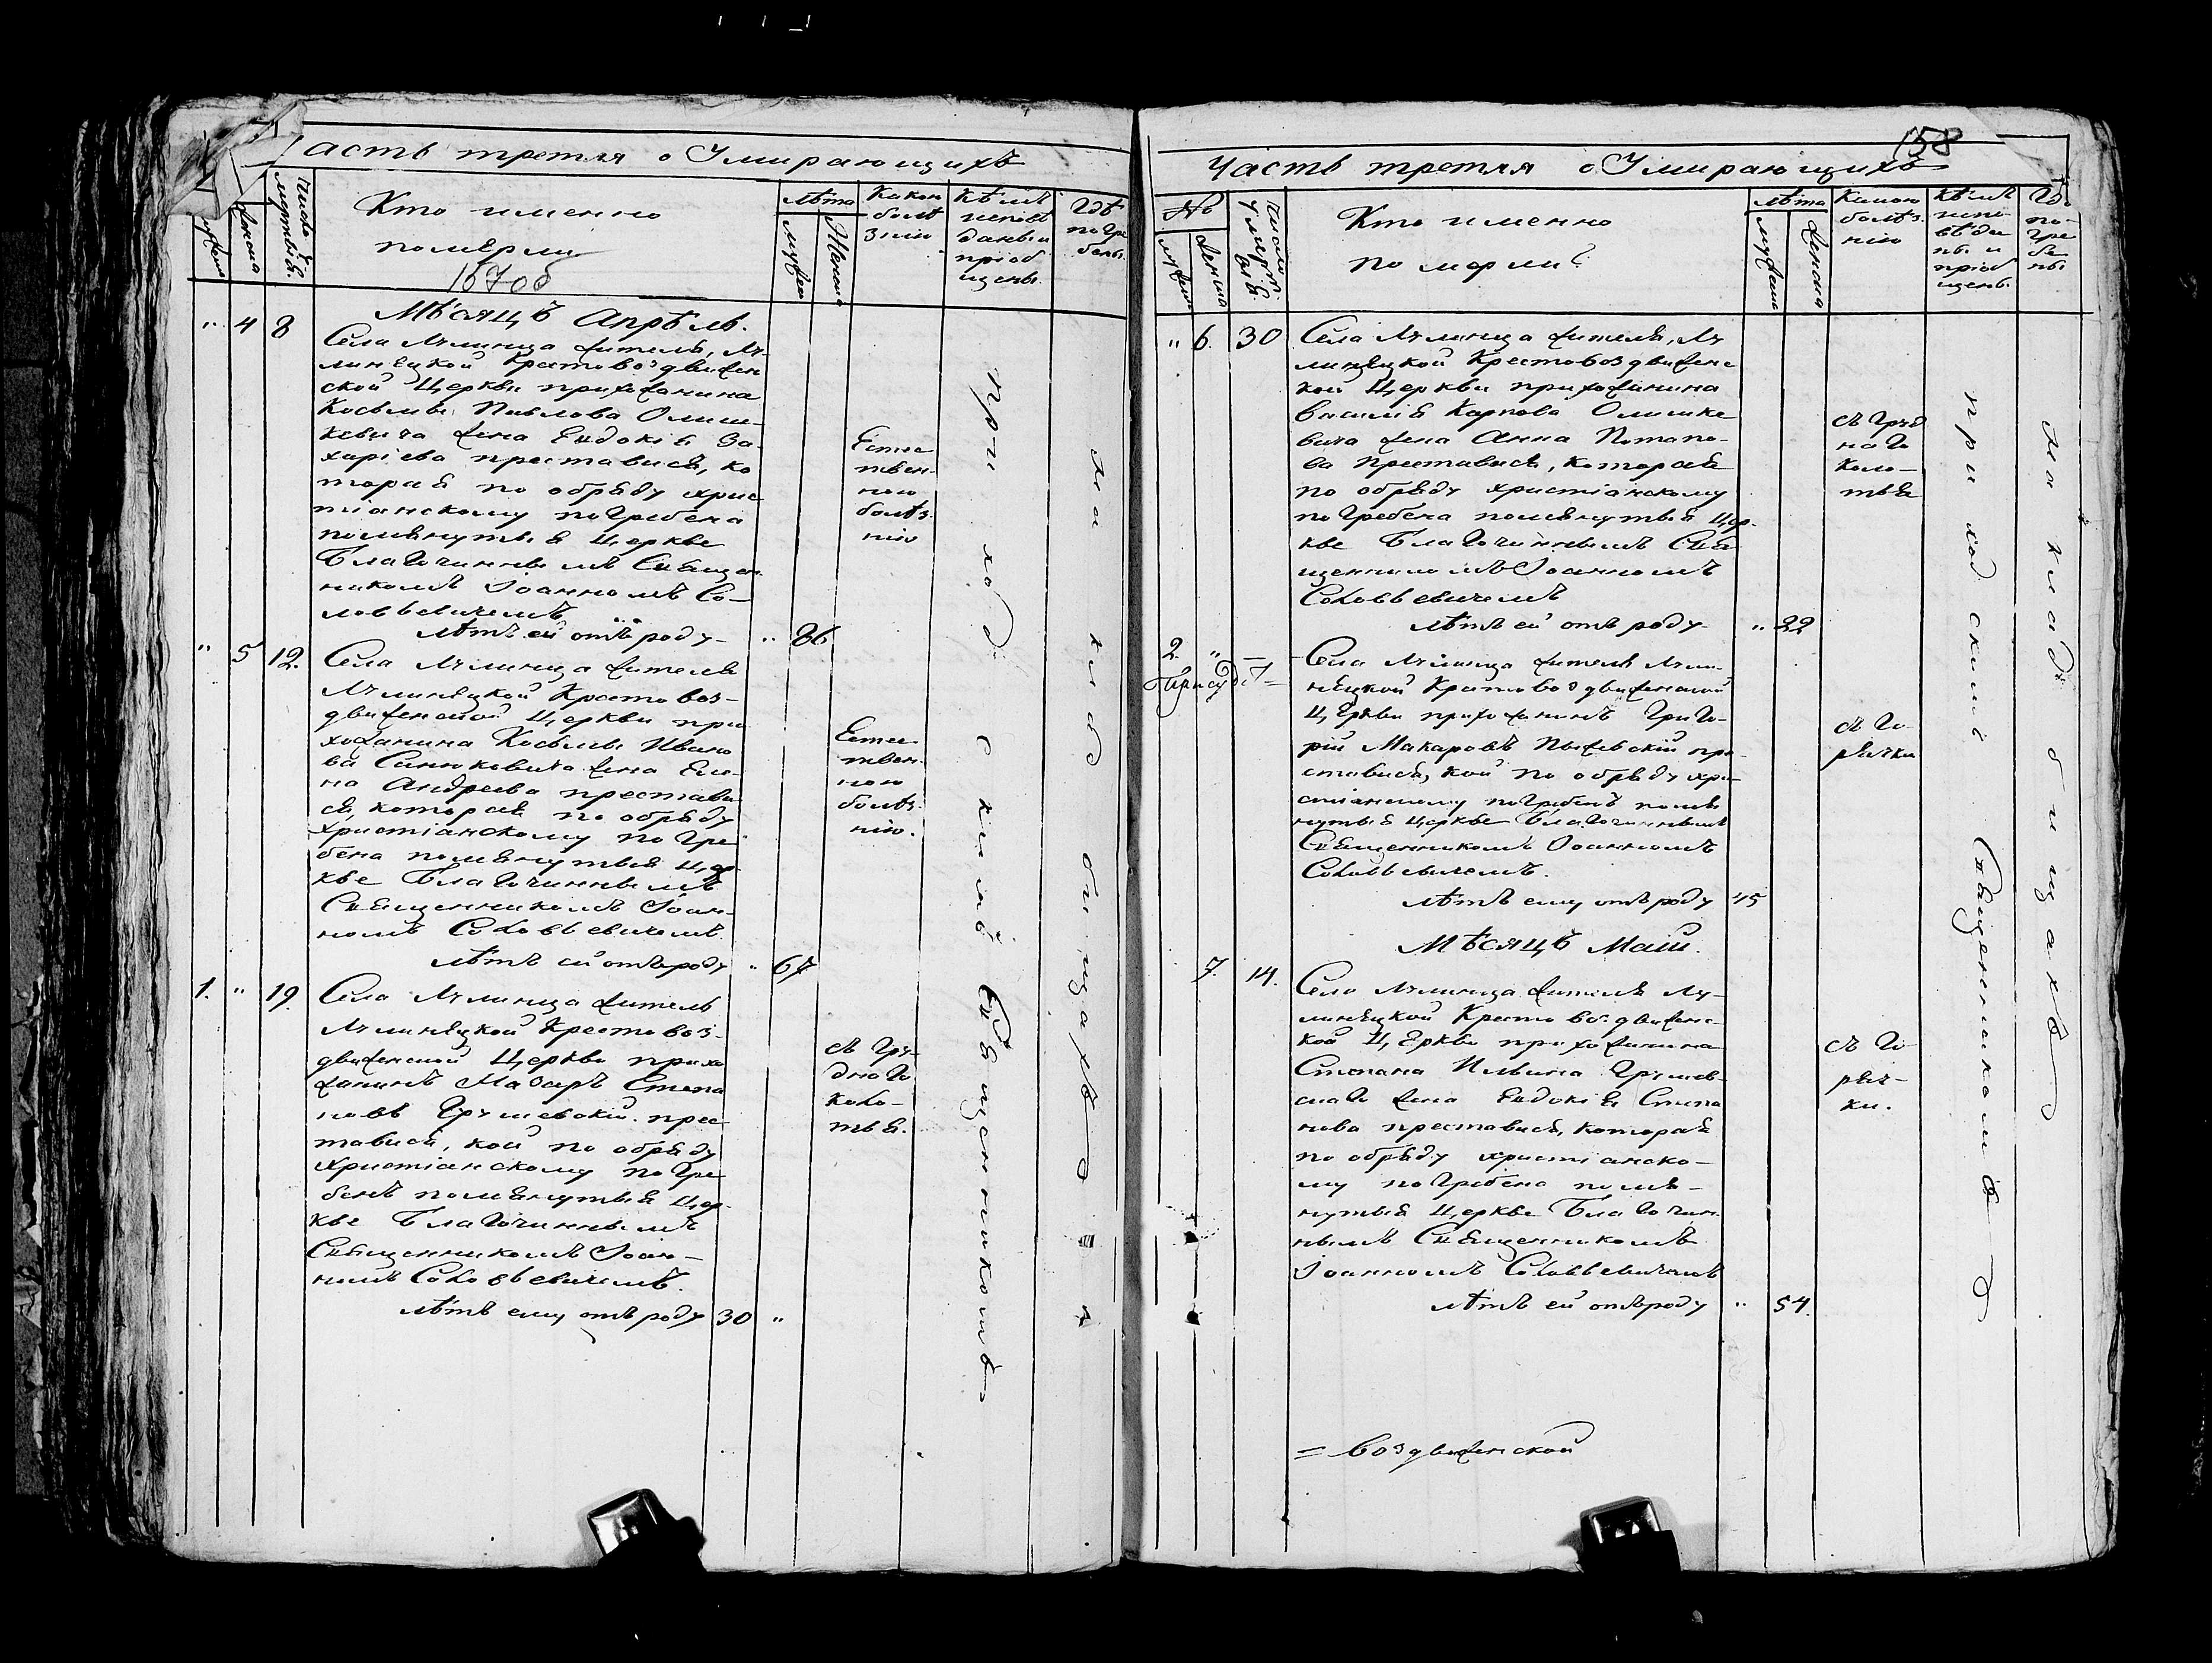 Часть третія о Умирающихъ
мужеска
женска
Число мертвыхъ.
Кто именно
померли
1870б
лѣта
мужеска
Женска
Какою
болѣ
знію
Кѣмъ
исповѣ
даны и
пріоб
щены.
Гдѣ
погре
бены.
Мѣсяцъ Апрѣль.
" 4 8
Села Лулинца жителя, Лу-
линецкой Крестовоздвижен
ской Церкви прихожанина
Косьмы Павлова Олиш-
кевича жена Евдокія За-
харіева преставися, ко
торая по обряду хрис
тіанскому погребена
помянутыя Церкве
Благочиннымъ Священ
никомъ Іоанномъ Со-
ловьевичемъ
лѣтъ ей отъ роду " 86
Естес
твен-
ною
болѣз.
нію
" 5 12.
Села Лулинца жителя
Лулинецкой Крестовоз-
движенской Церкви при
хожанина Косьмы Ивано
ва Синкевича жена Еле-
на Андреева престави
ся, которая по обряду
христіанскому погре
бена помянутыя Цер-
кве Благочиннымъ
Священникомъ Іоан-
номъ Соловьевичемъ.
лѣтъ ей отъ роду " 67
Естес
твен.
ною
болѣз.
нію.
1. " 19.
Села Лулинца житель
Лулинецкой Крестовоз-
движенской Церкви прихо
жанинъ Назаръ Степа
новъ Грушевскій прес
тавися, кой по обряду
Христіанскому погре
бенъ помянутыя Цер-
кве Благочиннымъ
Священникомъ Іоан-
номъ Соловьевичемъ.
лѣтъ ему отъ роду 30 "
съ Гру-
днаго
Коло-
тья.
приходскимъ Священникомъ
на кладбищахъ
158
Часть третія о Умирающихъ
№
мужеска
женска
число умерш:
Кто именно
померли?
лѣта
мужеска
женска
Какою
болѣз.
нію
Кѣмъ
испо-
вѣда
ны и
пріоб
щены.
Гдѣ
по-
гре
бе
ны
" 6. 30
Села Лулинца жителя, Лу
линецкой Крестовоздвиженс
кой Церкви прихожанина
Василія Карпова Олишке
вича жена Анна Потапо-
ва преставися, которая
по обряду христіанскому
погребена помянутыя Цер-
кве Благочиннымъ Свя
щенникомъ Іоанномъ
Соловьевичемъ
лѣтъ ей отъ роду " 22
съ Груд
наго
Коло-
тья
2. " —
Села Лулинца житель Лули-
нецкой Крестовоздвиженской
Церкви прихожанинъ Григо-
рій Макаровъ Пыжевскій пре
ставися, кой по обряду хри-
стіанскому погребенъ помя
нутыя Церкве Благочиннымъ
Священникомъ Іоанномъ
Соловьевичемъ.
лѣтъ ему отъ роду 45
съ Го
рячки
Мѣсяцъ Маій.
7. 14.
Села Лулинца жителя Лу-
линецкой Крестовоздвиженс-
кой Церкви прихожанина
Стефана Ильина Грушев-
скаго жена Евдокія Степа
нова преставися, которая
по обряду христіанско-
му погребена помя-
нутыя Церкве Благочин.
нымъ Священникомъ
Іоанномъ Соловьевичемъ
лѣтъ ей отъ роду " 54.
съ Го
ряч-
ки.
приходскимъ Священникомъ
на кладбищахъ
= Воздвиженской